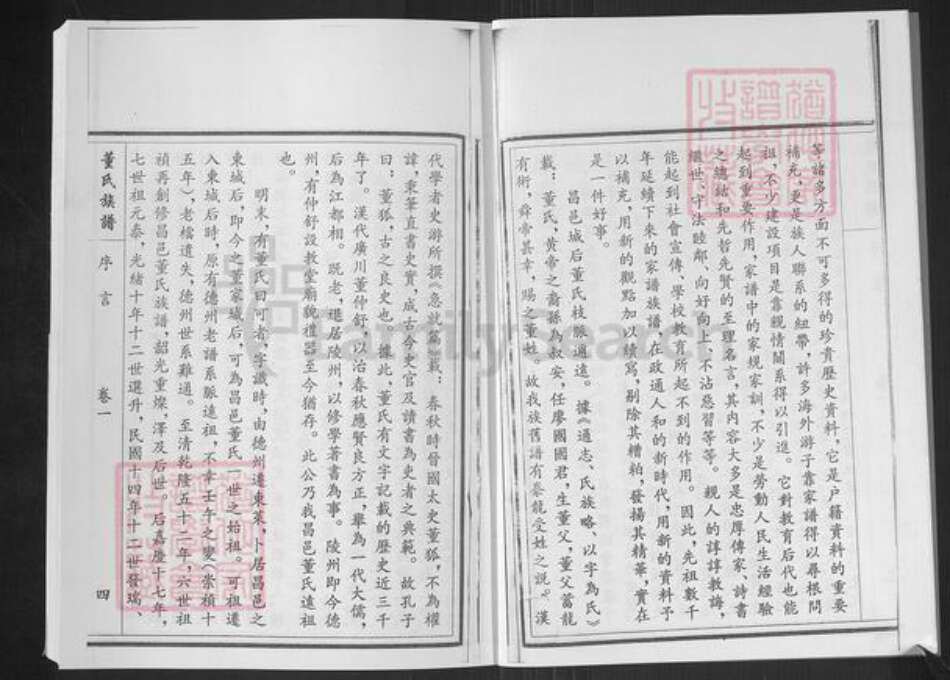 等諸多方面不可多得的珍貴歷史資料，它是户籍資料的重要
補充，更是族人聯系的紐帶，許多海外游子靠家譜得以尋根問
祖，不少建設項目是靠親情關系得以引進。它對教育后代也能
起到重要作用，家譜中的家規家訓，不少是勞動人民生活經驗
之總結和先哲先賢的至理名言，其内容大多是忠厚傳家、詩書
繼世、守法睦鄰、向好向上、不沾惡習等等。親人的諄諄教誨，
能起到社會宣傳、學校教育所起不到的作用。因此，先祖數千
年延續下來的家譜族譜，在政通人和的新時代，用新的資料予
以補充，用新的觀點加以續寫，剔除其糟粕，發揚其精華，實在
是一件好事。
昌邑城后董氏枝脈通遠。據《通志、氏族略、以字為氏》
載：董氏，黄帝之裔孫為叔安，任廖國國君，生董父，董父蓄龍
有術，舜帝甚幸，賜之董姓。故我族舊譜有豢龍受姓之說。漢
代學者史游所撰《急就篇》載：春秋時晉國太史董狐，不為權
諱，秉筆直書史實，成古今史官及讀書為吏者之典範。故孔子
曰：董狐，古之良史也。據此，董氏有文字記載的歷史近三千
年了。漢代廣川董仲舒，以治春秋應賢良方正，舉為一代大儒，
后為江都相。既老，退居陵州，以修學著書為事。陵州即今德
州，有仲舒設教堂廟貌禮器至今猶存。此公乃我昌邑董氏遠祖
也。
明末，有董氏曰可者，字識時，由德州遷東萊，卜居昌邑之
東城后，即今之董家城后，可為昌邑董氏一世之始祖。可祖遷
入東城后時，原有德州老譜系脈遠祖，不幸壬午之變（崇禎十
五年），老檔遺失，德州世系難通。至清乾隆五十二年，六世祖
禎再創修昌邑董氏族譜，韶光重燦，澤及后世。后嘉慶十七年，
七世祖元泰，光緒十年十二世選升，民國十四年十二世發瑞、
董氏族譜
序言
卷一
四
FamilySearch